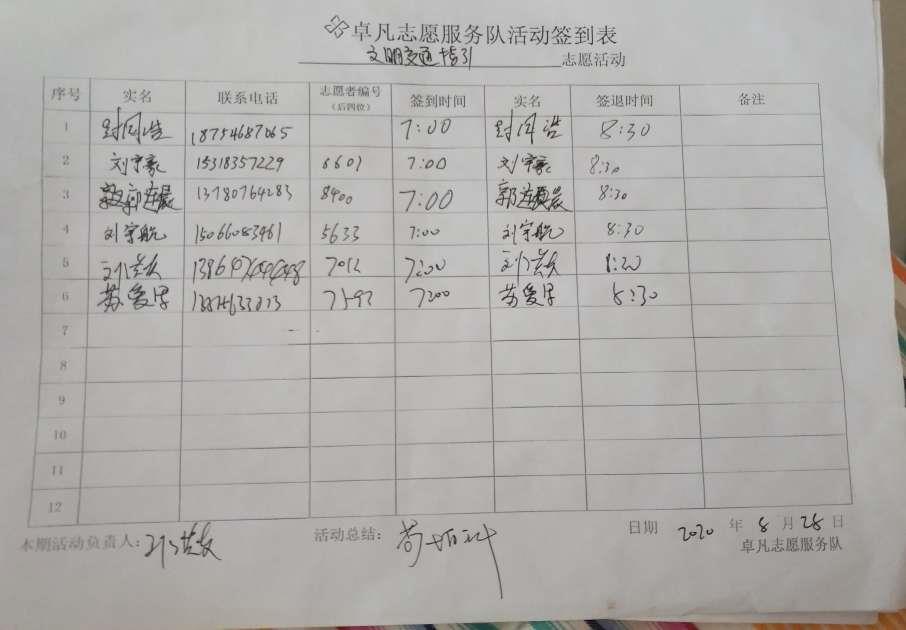 卓凡志愿服务队活动签到表
文明交通指引 志愿活动
序号 实名 联系电话 志愿者编号（后四位） 签到时间 实名 签退时间 备注
1 封同浩 18754687065 7:00 封同浩 8:30
2 刘宇豪 15318357229 6601 7:00 刘宇豪 8:30
3 郭连晨 13780764283 8400 7:00 郭连晨 8:30
4 刘宇航 15066083461 5633 7:00 刘宇航 8:30
5 7012 7:00 8:20
6 苏爱军 7592 7:00 苏爱军 8:30
7
8
9
10
11
12
本期活动负责人: 活动总结: 日期 2020 年 8 月 28 日
卓凡志愿服务队